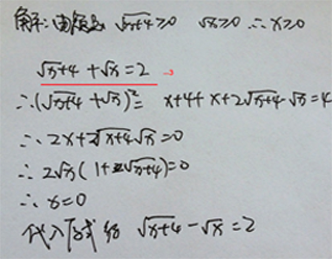 解:由题意 √x+4≥0 √x≥0 ∴x≥0
√x+4 + √x = 2
∴(√x+4 + √x)²= x+4+x+2√x+4·√x=4
∴ 2x+2√x+4√x=0
∴ 2√x(1+√x+4)=0
∴ x=0
代入原式得 √x+4 - √x = 2